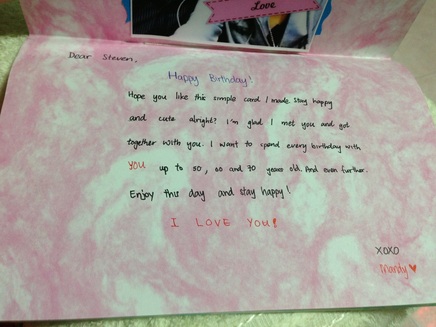 Love
Dear Steven,
Happy Birthday!
Hope you like this simple card I made. Stay happy
and cute alright? I'm glad I met you and got
together with you. I want to spend every birthday with
YOU up to 50, 60 and 70 years old. And even further.
Enjoy this day and stay happy!
I LOVE YOU!
XOXO
Mandy